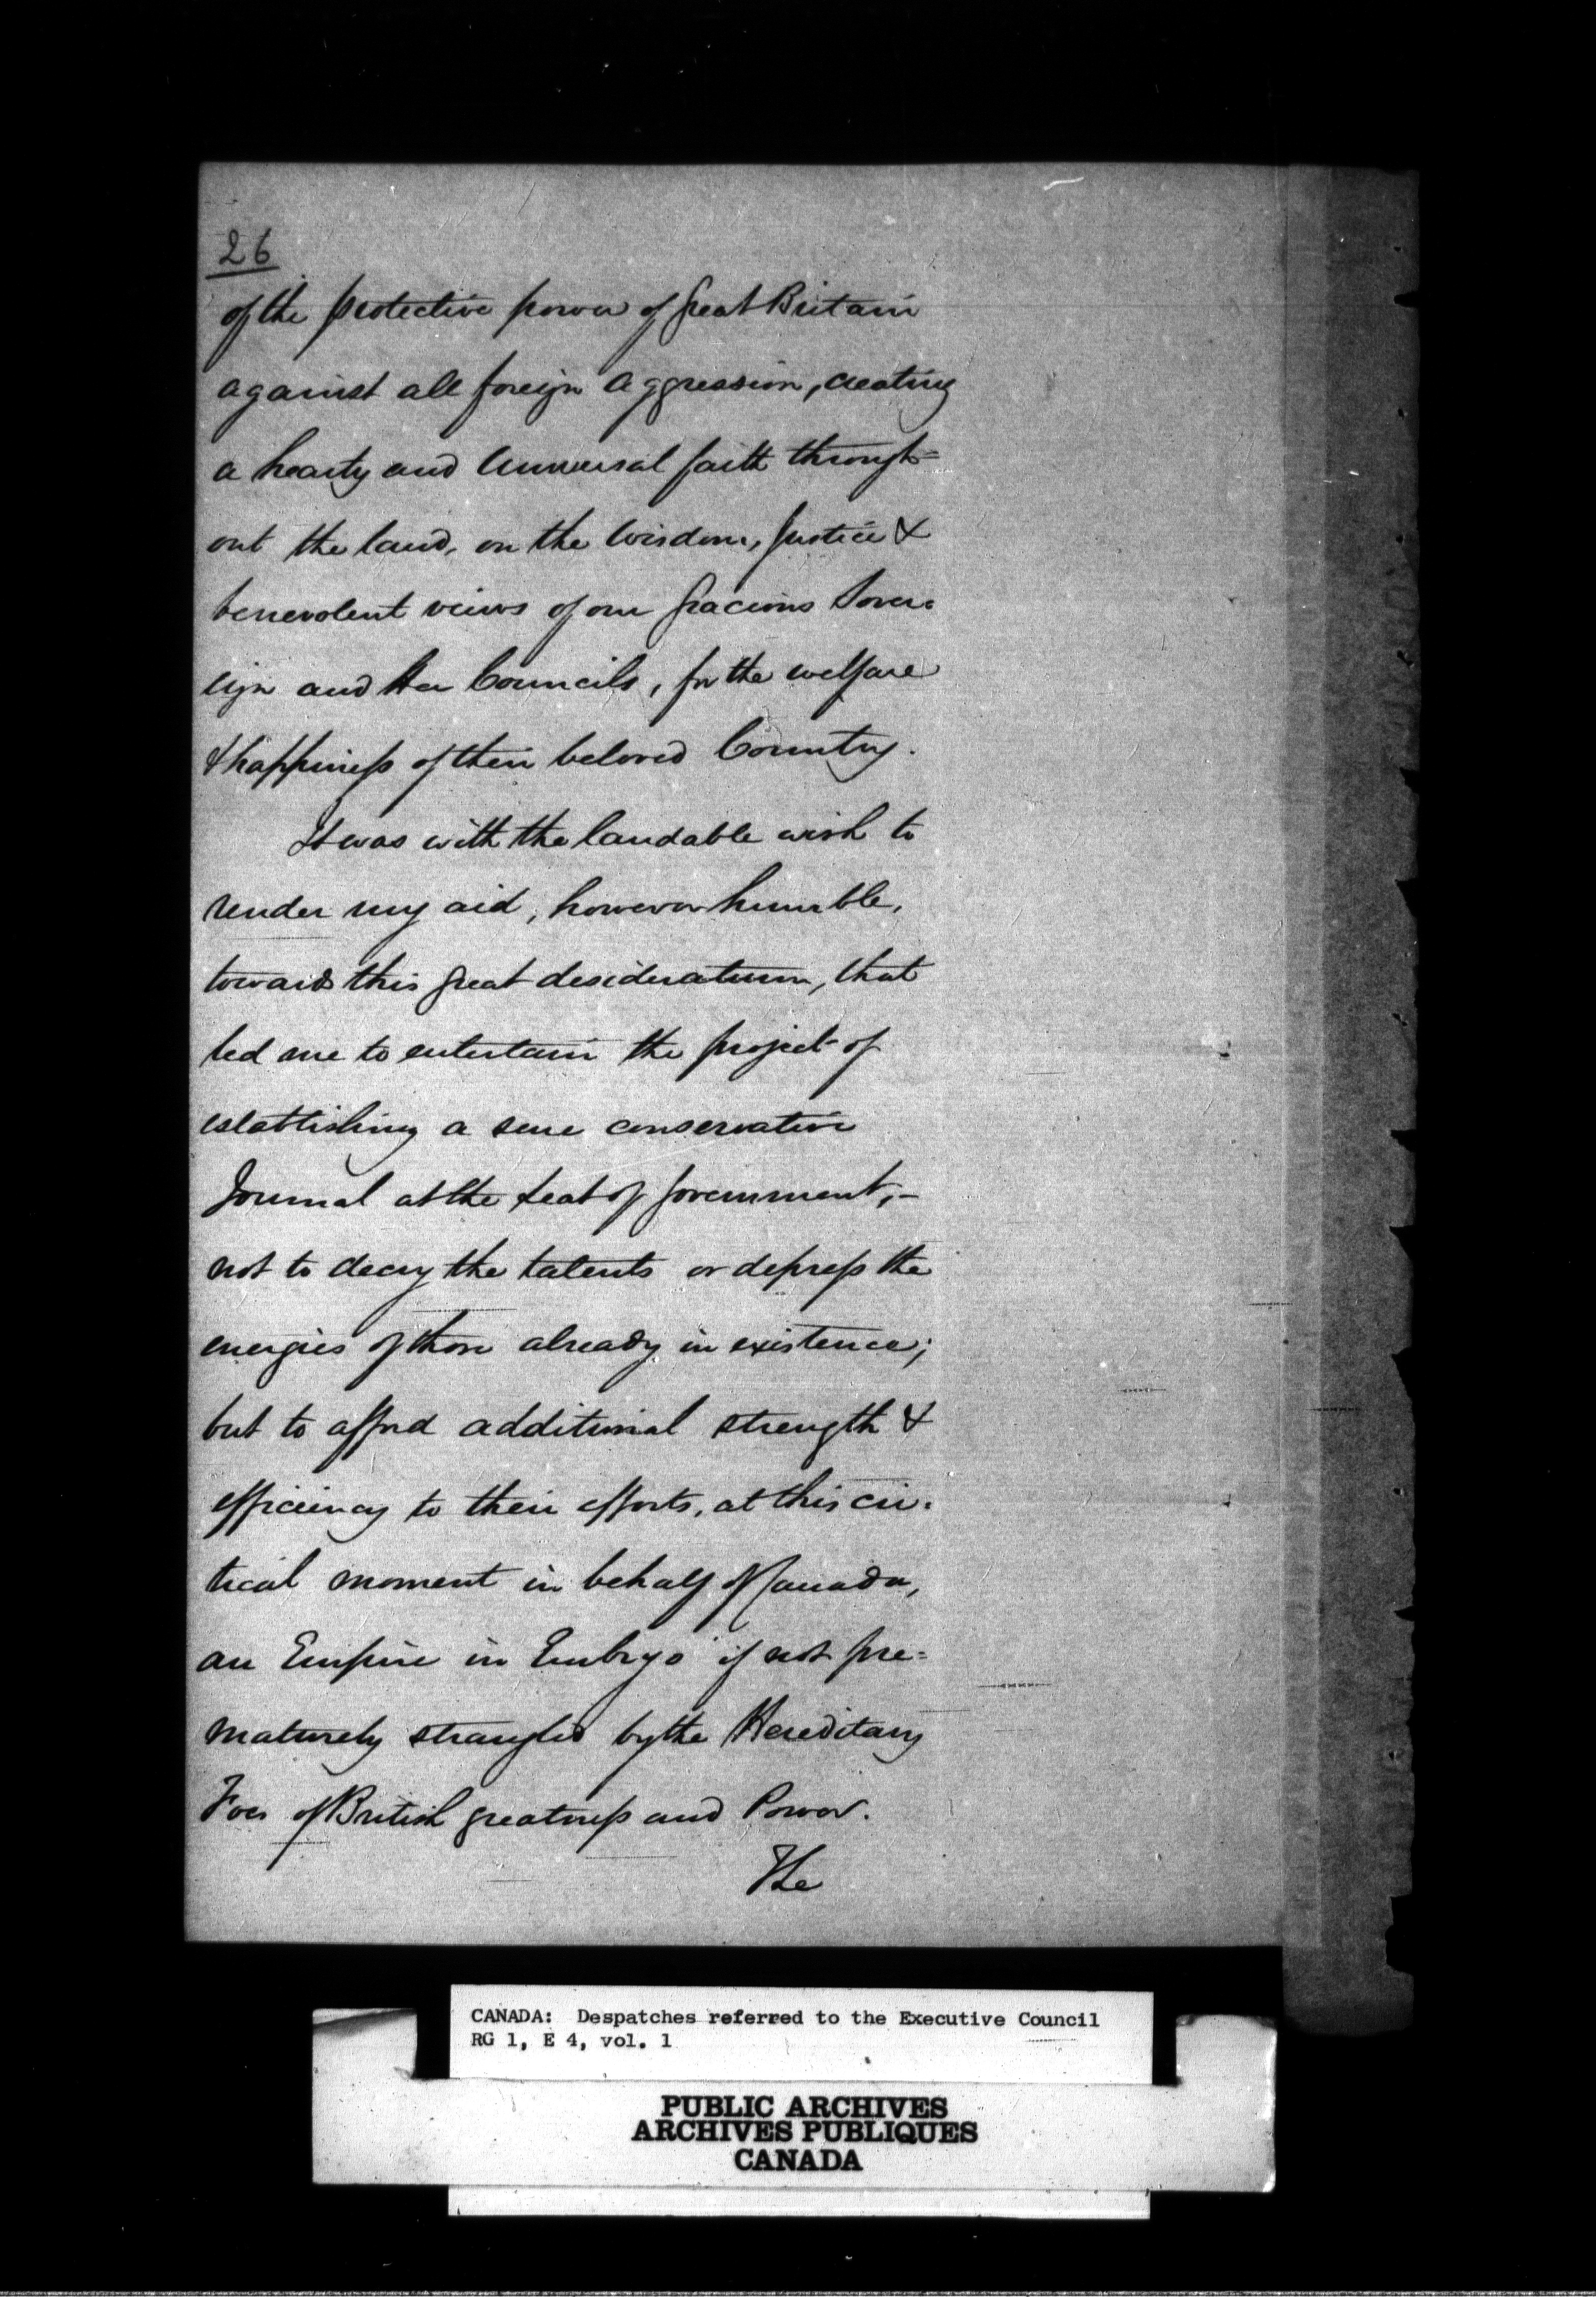 26
of the protective power of Great Britain
against all foreign Aggression, creating
a hearty and Universal faith through=
out the land, on the Wisdom, Justice &
benevolent views of our Gracious Sover=
eign and Her Councils, for the welfare
& happiness of their beloved Country.
It was with the laudable wish to
render my aid, however humble,
towards this great desideratum, that
led me to entertain the project of
establishing a conservative
Journal at the Seat of Government,-
not to decry the talents or depress the
energies of those already in existence;
but to afford additional strength &
efficiency to their efforts, at this cri=
tical moment in behalf of Canada,
an Empire in Embryo if not pre=
maturely strangled by the Hereditary
Foes of British greatness and Power.
The
CANADA: Despatches referred to the Executive Council
RG 1, E 4, vol. 1
PUBLIC ARCHIVES
ARCHIVES PUBLIQUES
CANADA